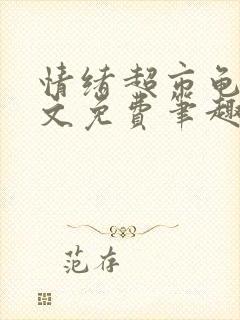 情绪超市龟
文免费笔趣
范存